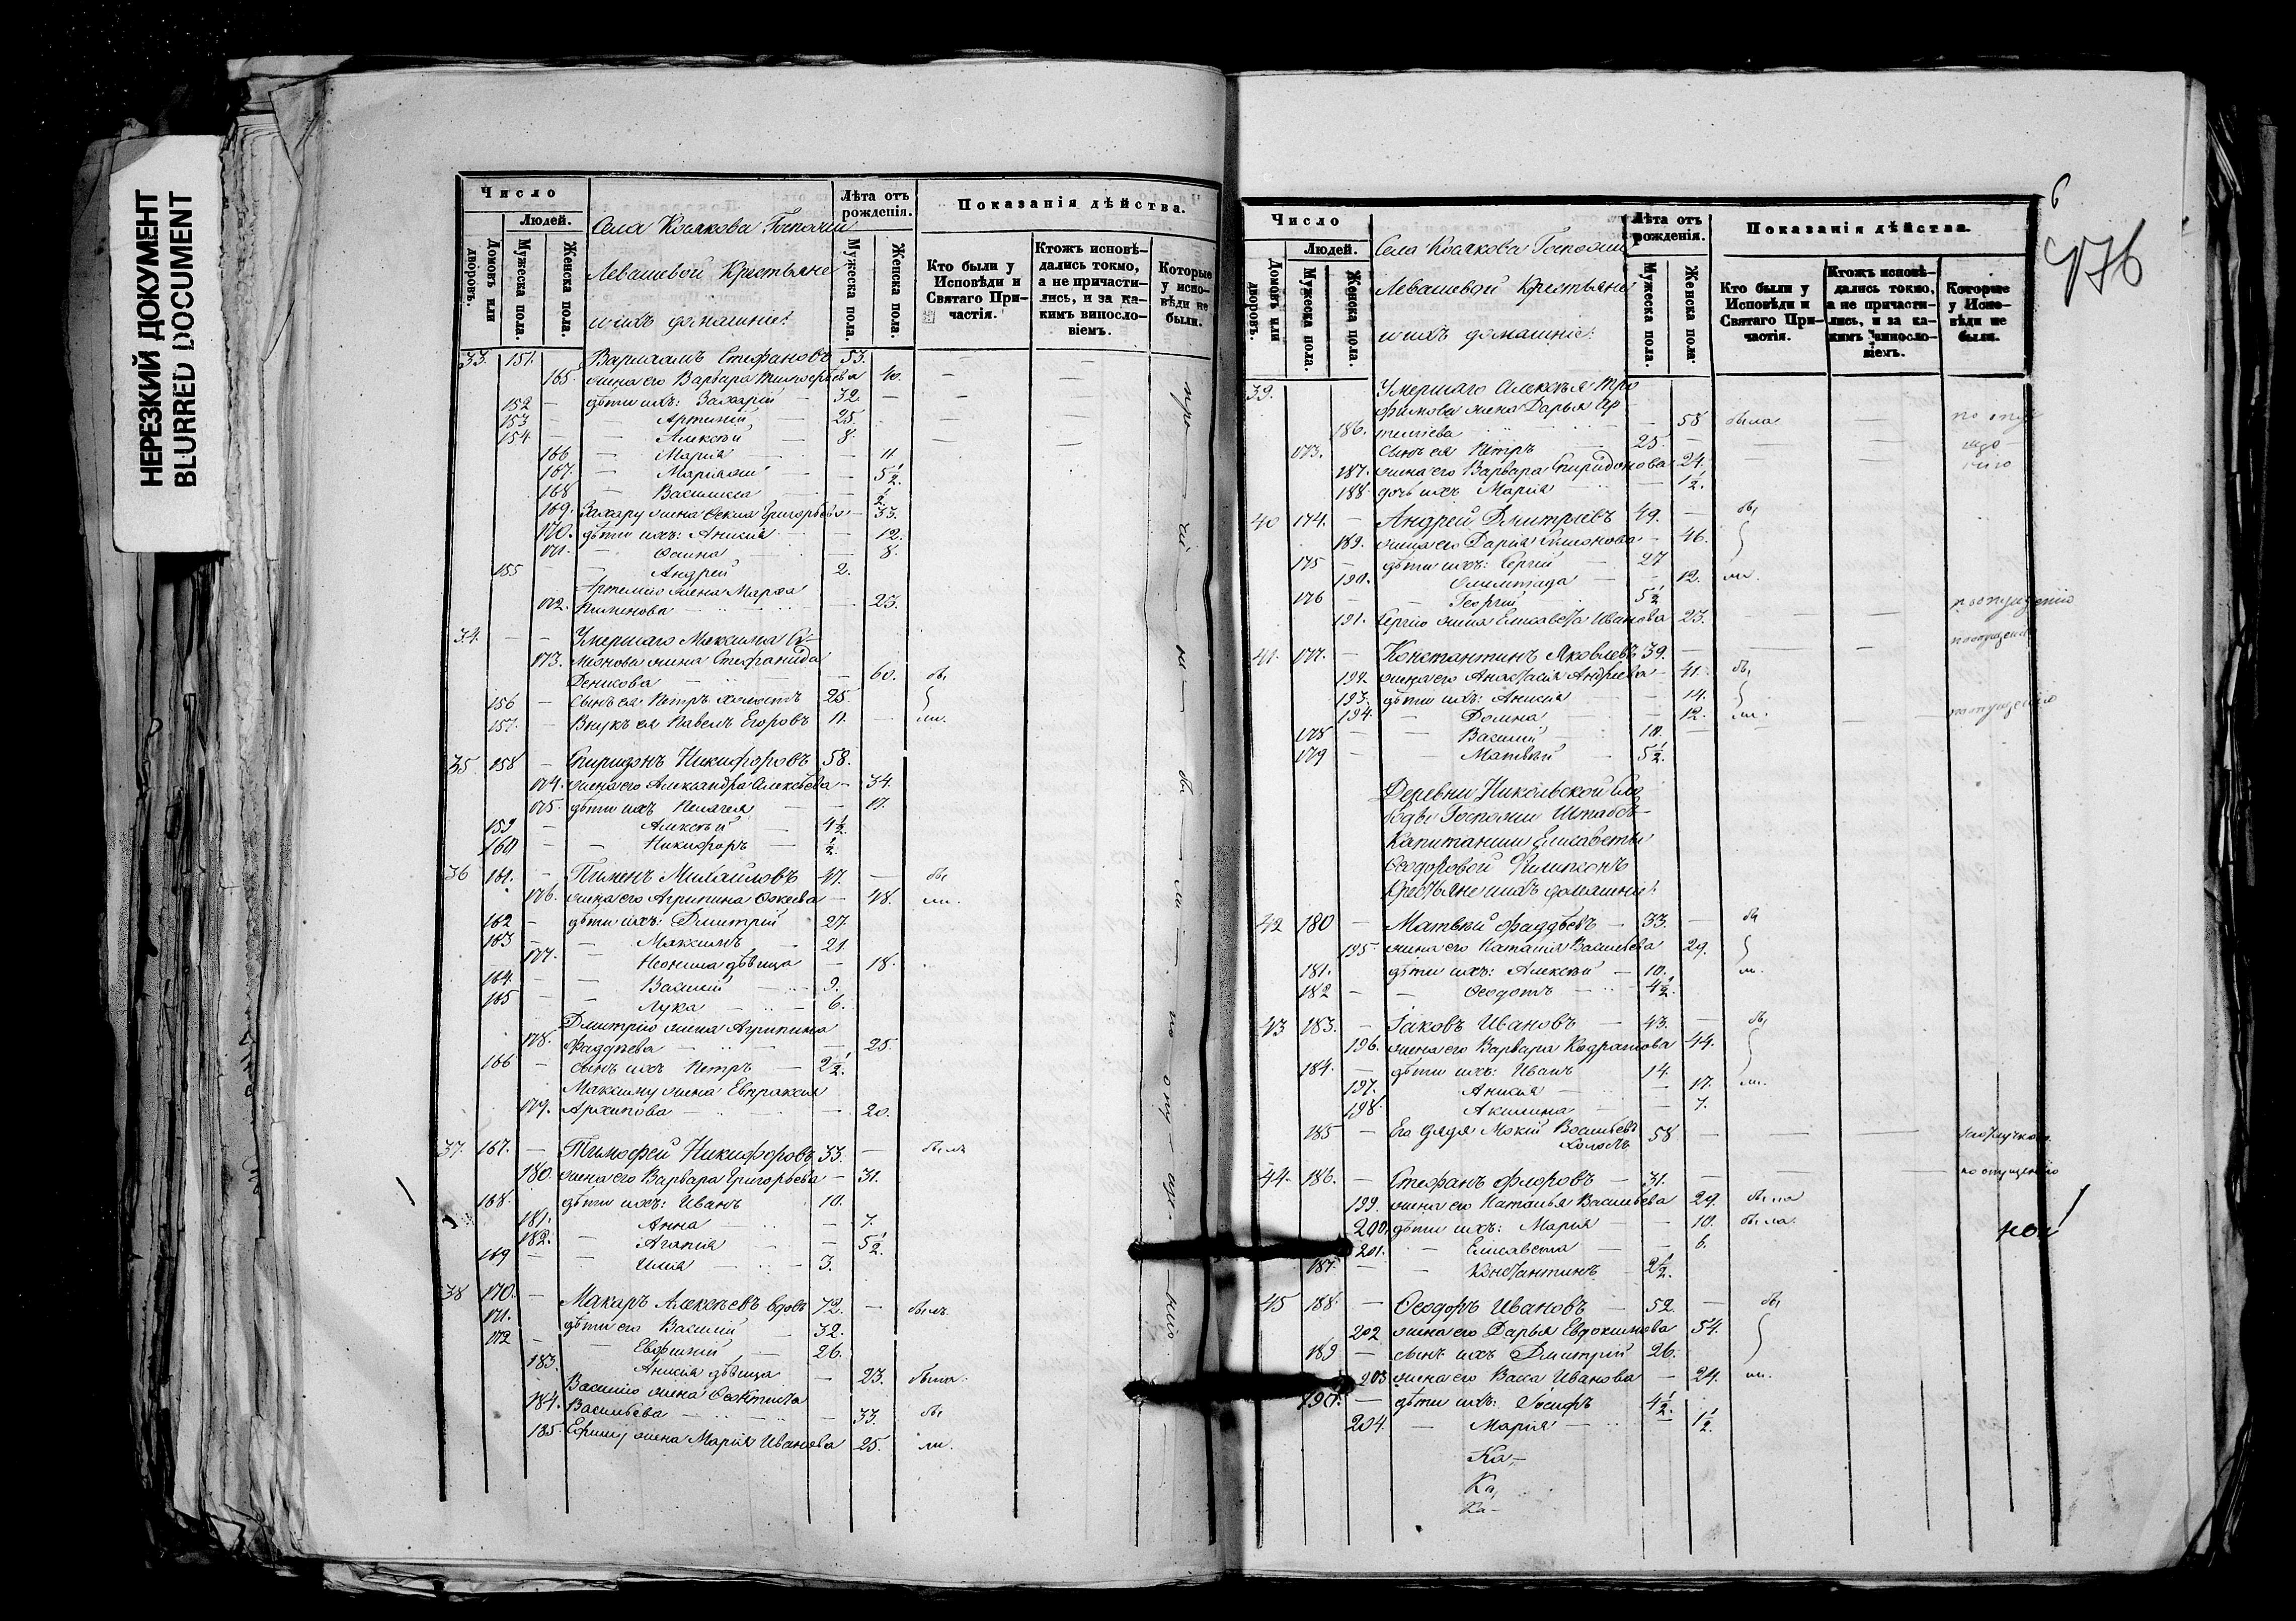 НЕРЕЗКИЙ ДОКУМЕНТ
BLURRED DOCUMENT
Число
Людей.
Домовъ или дворовъ.
Мужеска пола.
Женска пола.
Села Госпожи
Левашевой Крестьяне
и ихъ домашніе:
Лѣта отъ рожденія.
Мужеска пола.
Женска пола.
Показанія дѣйства.
Кто были у Исповѣди и Святаго Причастія.
Ктожъ исповѣдались токмо, а не причастились, и за какимъ винословіемъ.
Которые у исповѣди не были.
33. 151. Варлаамъ Стефановъ 53.
165. жена его Варвара 40.
152 — дѣти ихъ: Захарій — 32.
153 — Артемій — 25.
154 — — Алексѣй — 8.
166 — Марія — — 11.
167. — — 5½.
168 — Василиса — ½.
169. Захару жена Григорьева — 33.
170. дѣти ихъ: Анисія — — 12.
171. — — 8.
155 — Андрей 2.
Артемію жена Марѳа
172. Пименова — — 23.
34. — — Умершаго Максима Си-
173. монова жена Стефанида
Денисова — — 60. бы
156 — Сынъ ея Петръ холостъ 25.
157. — Внукъ ея Павелъ Егоровъ 11. — ли.
35 158 — Спиридонъ Никифоровъ 58.
174. жена его Александра Алексѣева — 34.
175. дѣти ихъ Пелагея — — 17.
159 — Алексѣй — 4½.
160 — — Никифоръ — ½.
36 161. — Пименъ Михайловъ 47. — бы
176. жена его Агрипина — 48. ли.
162 — дѣти ихъ: Дмитрій 27.
163 — — Максимъ — 21
177. — Неонила дѣвица — 18.
164. — — Василій — 9.
165 — — Лука — 6.
Дмитрію жена Агрипина
178. Фаддѣева — — 25.
166 — сынъ ихъ Петръ — 2½.
Максиму жена Евпраксія
179. Архипова — — 20.
37. 167. — Тимофей Никифоровъ 33. — былъ
180 жена его Варвара Григорьева — 31.
168. дѣти ихъ: Иванъ 10.
181. Анна — — 7.
182. — Агапія — 5½.
169 — — Илія — 3.
38 170. — Макаръ Алексѣевъ вдовъ 72. — былъ
171. дѣти его Василій — 32.
172 — — Евфимій — 26.
183. Анисія дѣвица — 23. была.
Василію жена Ѳеоктиста
184. Васильева — — 33. бы
185. Ефиму жена Марія Иванова 25. ли.
6
476
Число
Людей.
Домовъ или дворовъ.
Мужеска пола.
Женска пола
Села Госпожи
Левашевой Крестьяне
и ихъ домашніе:
Лѣта отъ рожденія.
Мужеска пола.
Женска пола.
Показанія дѣйства.
Кто были у Исповѣди и Святаго Причастія.
Ктожъ исповѣдались токмо, а не причастились, и за какимъ винословіемъ.
Которые у Исповѣди не были.
39. Умершаго Алексѣя Тро
фимова жена Дарья Ар
186. темьева — 58 была
173. Сынъ ея Петръ 25 —
187. жена его Варвара Спиридонова 24.
188. дочь ихъ Марія 1½.
40 174. — Андрей Дмитріевъ 49. — бы
189. жена его Дарія — 46.
175 — дѣти ихъ: Сергій — 27
190. Олимпіада — 12. ли.
176 — — Георгій 5½
191. Сергію жена Елисавета Иванова 23. по опущенію
41. 177. — Константинъ Яковлевъ 39. —
192 жена его Анастасія Андреева — 41. бы
193. дѣти ихъ: Анисія — 14.
194. — Домна — — 12. ли.
178 — — Василій — 10.
179 — — Матвѣй — 5½.
Деревни Никольской Сло
боды Госпожи Штабсъ-
Капитанши Елисаветы
Ѳеодоровой
Крестьяне и ихъ домашніе:
42 180 — Матвѣй Фаддѣевъ — 33. — бы
195. жена его Наталія Васильева 29.
181. дѣти ихъ: Алексѣй — 10. ли.
182 — — Ѳеодотъ — 4½.
43 183. — Іаковъ Ивановъ — 43. — бы
196. жена его Варвара Кодратова 44.
184. — дѣти ихъ: Иванъ 14.
197. Анисія — — 17. ли.
198. Акилина — — 7.
185 — Его дядя Мокій Васильевъ
холостъ 58 —
44. 186. — Стефанъ Флоровъ — 31. — по опущенію
199. жена его Наталья Васильева 29. была
200. дѣти ихъ: Марія — — 10. была.
201. — Елисавета — — 6.
187. — — Константинъ — 2½.
45 188. — Ѳеодоръ Ивановъ — 52. — бы
202 жена его Дарья Евдокимова 54.
189 — сынъ ихъ Дмитрій 26.
203 жена его Васса Иванова — 24. ли.
190. — дѣти ихъ: Іосифъ 4½.
204. — Марія — — 1½.
Ка-
Ка,
Ка-